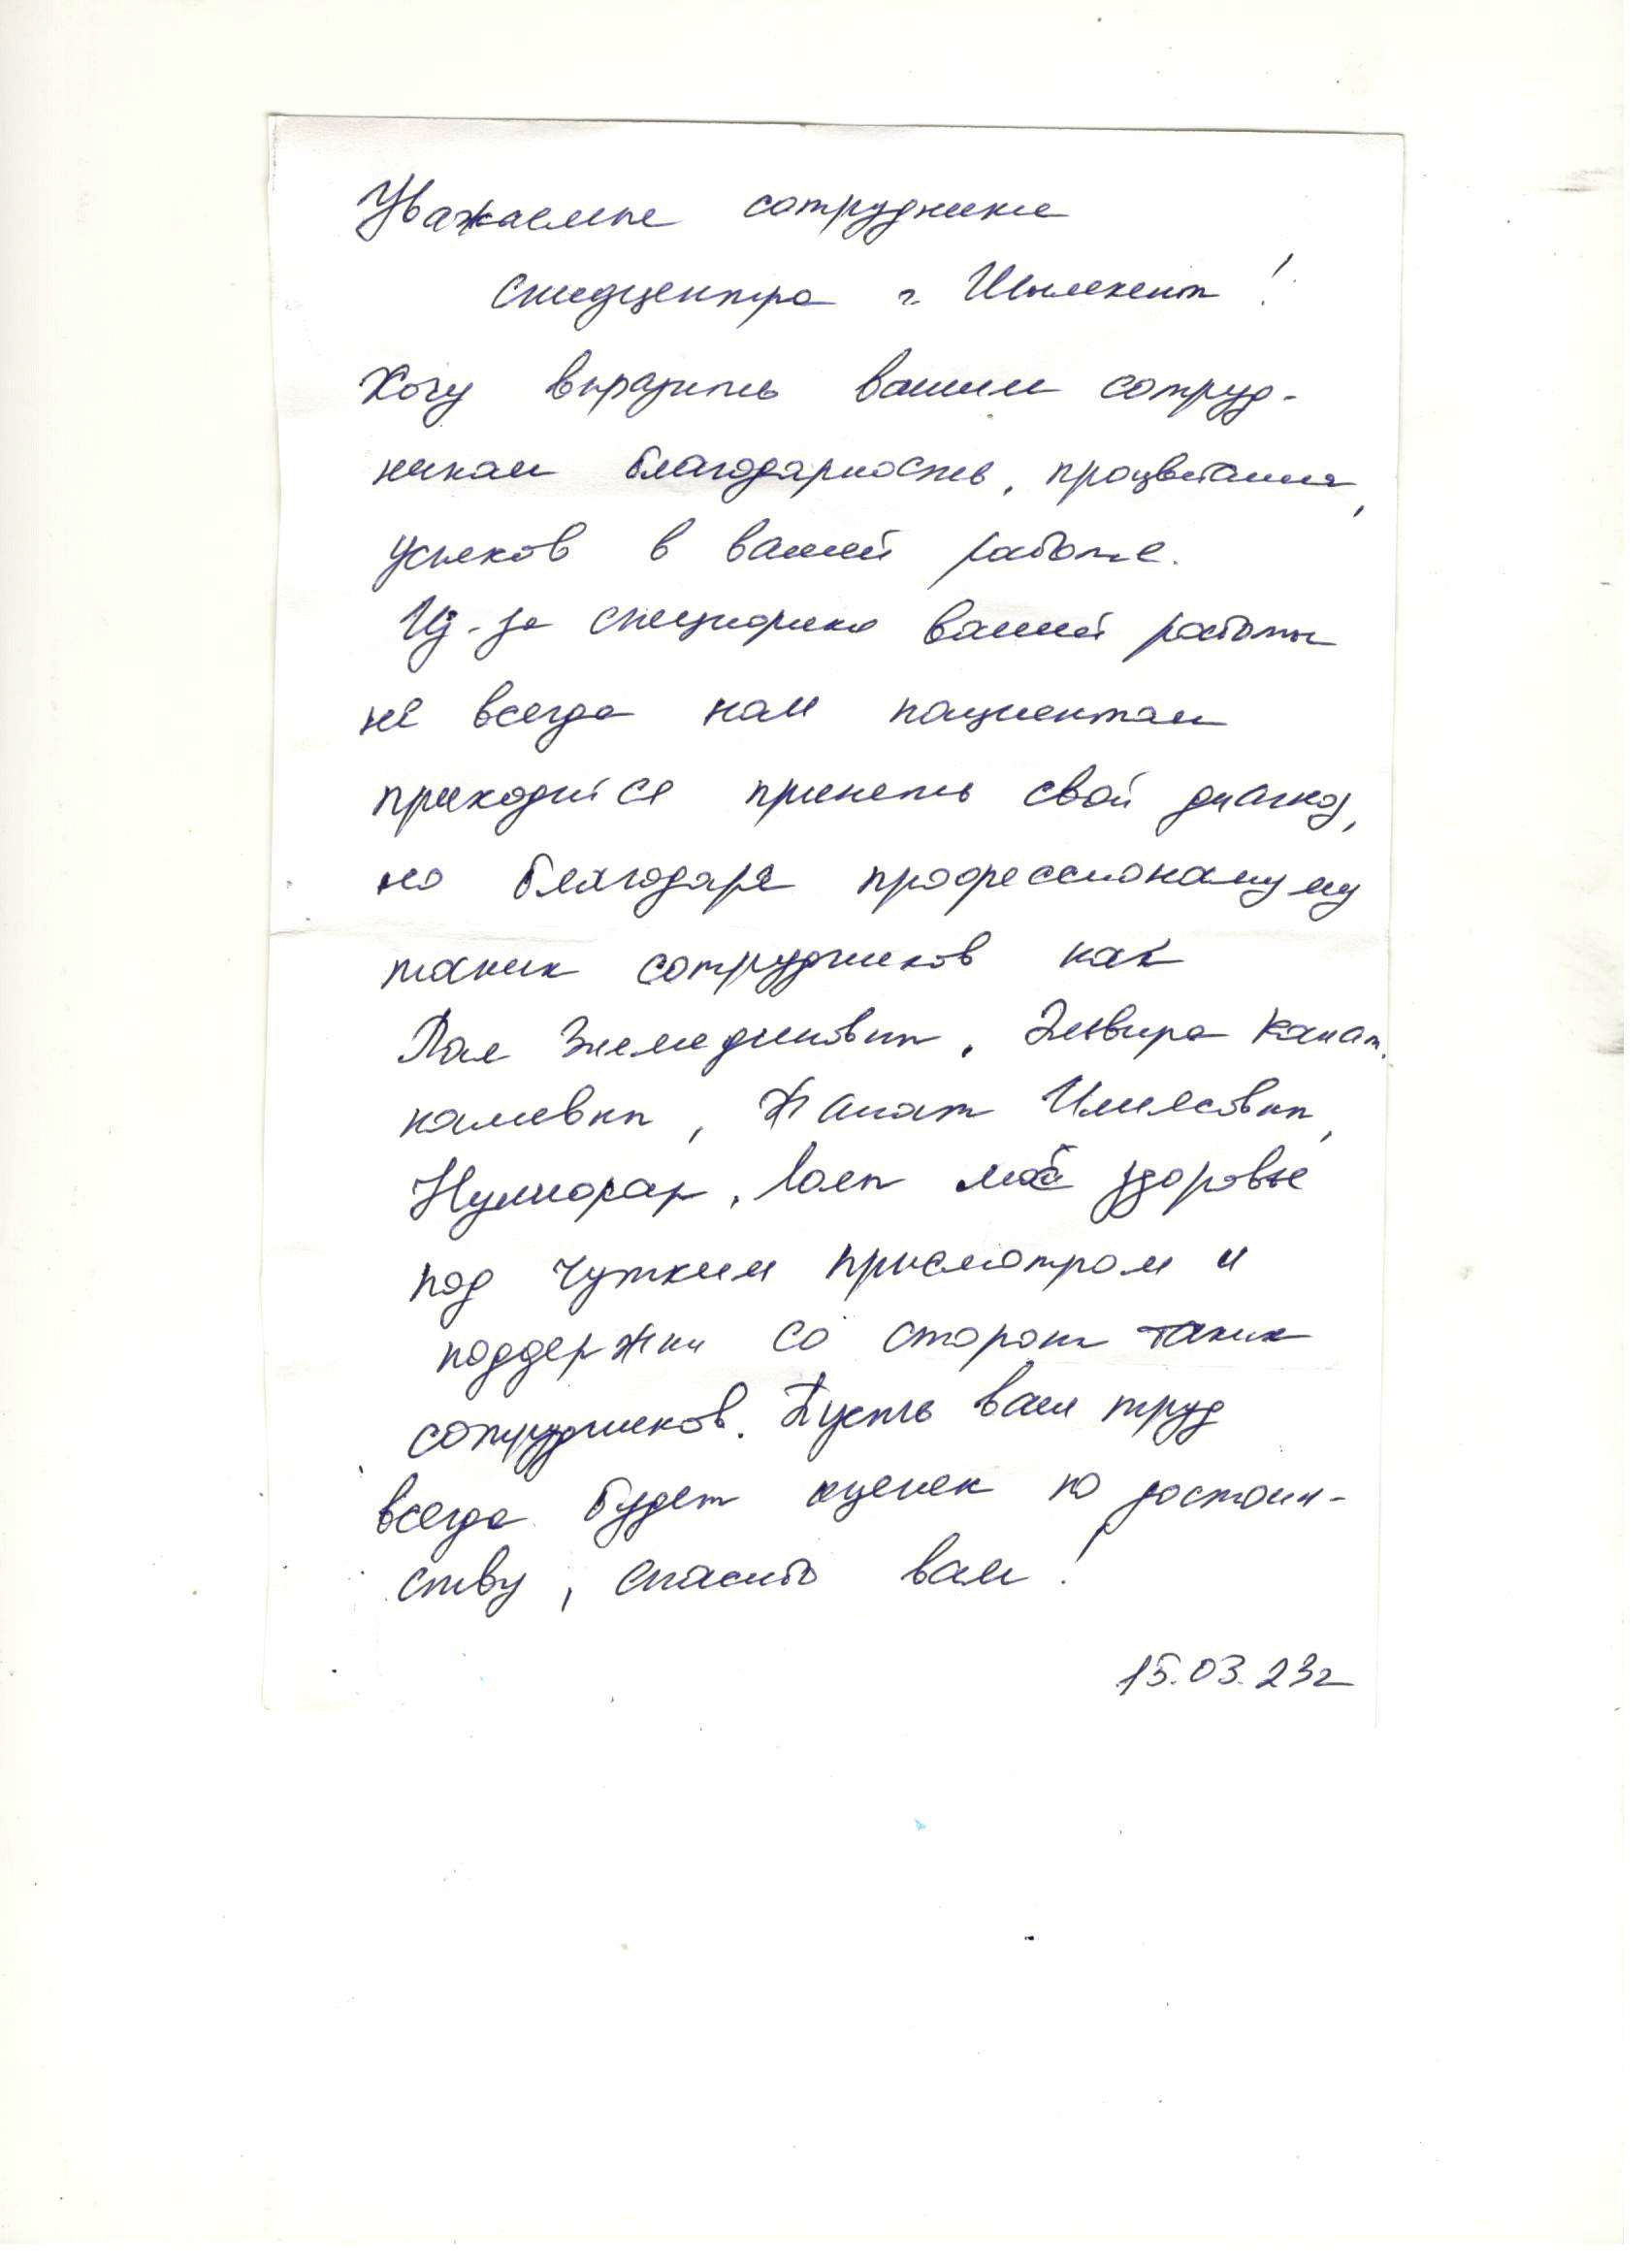 Уважаемые сотрудники
спидцентра г. Шымкент!
Хочу выразить вашим сотруд-
никам благодарность, процветания,
успехов в вашей работе.
Из-за специфики вашей работы
не всегда нам пациентам
приходится принять свой диагноз,
но благодаря профессионализму
таких сотрудников как
Эльвира Канат.
Жанат
моё здоровье
под чутким присмотром и
поддержки со стороны таких
сотрудников. Пусть ваш труд
всегда будет оценен по достоин-
ству, спасибо вам!
15.03.23г